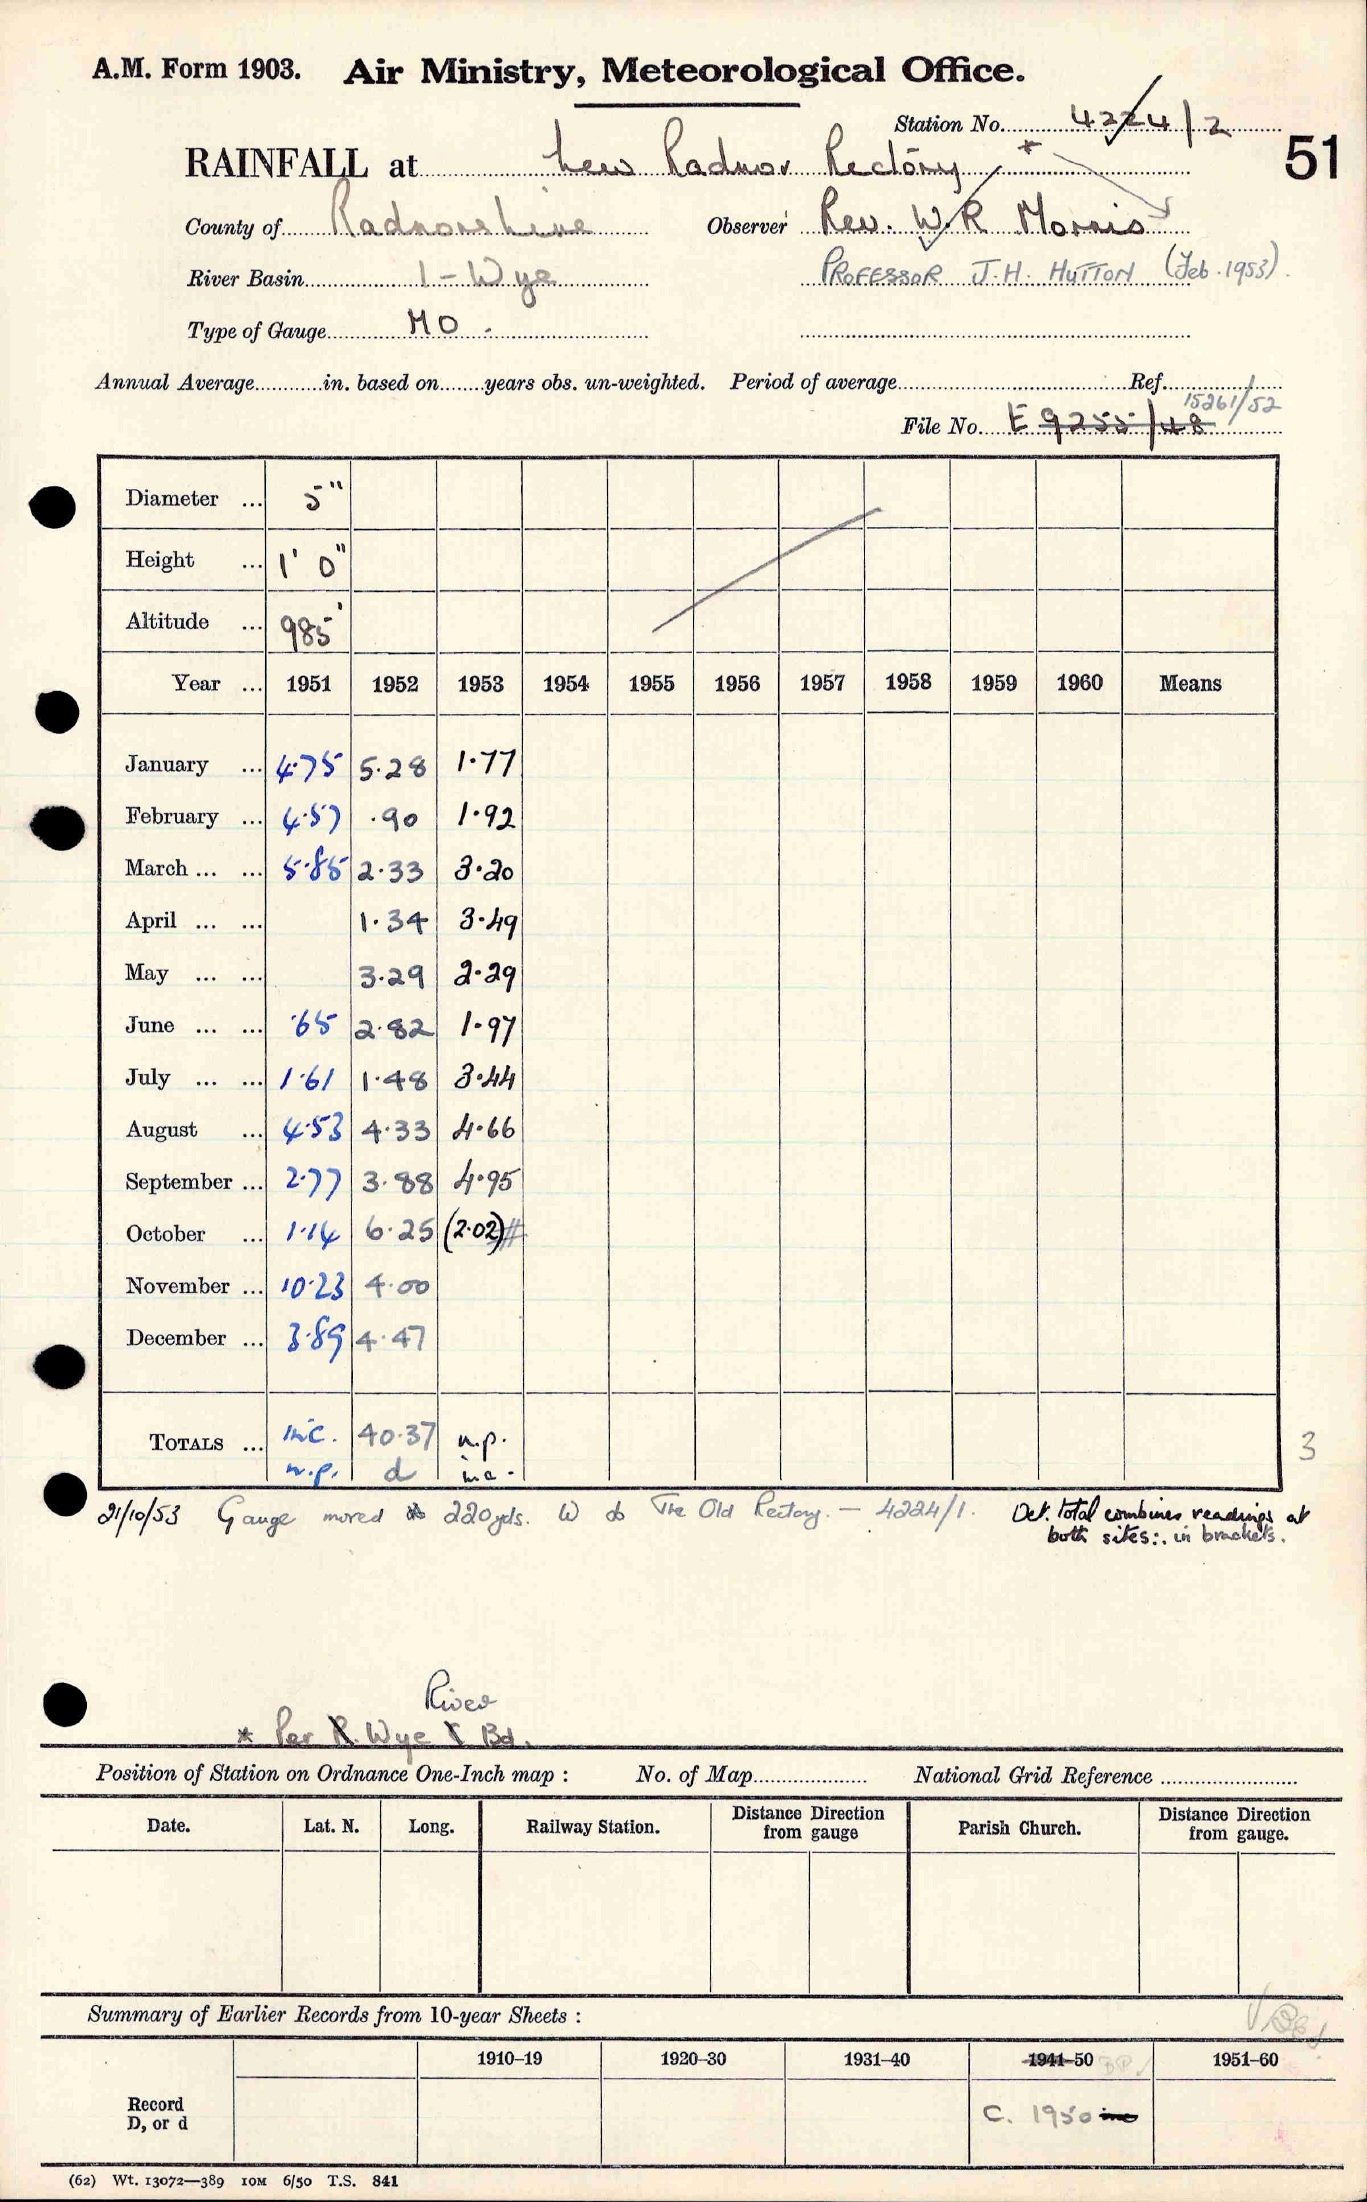 A.M. Form 1903. Air Ministry, Meteorological Office.
Station No. 4224/2
RAINFALL at New Radnor Rectory *
51
County of Radnorshire Observer Rev. W.R Morris
River Basin 1-Wye PROFESSOR J.H. HUTTON (Feb. 1953).
Type of Gauge MO.
Annual Average in. based on years obs. un-weighted. Period of average Ref.
15261/52
File No. E 9255/48
Diameter ... 5"
Height ... 1' 0"
Altitude ... 985'
Year ... 1951 1952 1953 1954 1955 1956 1957 1958 1959 1960 Means
January ... 4.75 5.28 1.77
February ... 4.57 .90 1.92
March ... ... 5.85 2.33 3.20
April ... ... 1.34 3.49
May ... ... 3.29 2.29
June ... ... .65 2.82 1.97
July ... ... 1.61 1.48 3.44
August ... 4.53 4.33 4.66
September ... 2.77 3.88 4.95
October ... 1.14 6.25 (2.02)#
November ... 10.23 4.00
December ... 3.89 4.47
TOTALS ... inc. 40.37 n.p.
n.p. d inc.
3
21/10/53 Gauge moved 220yds. W to The Old Rectory. — 4224/1. Oct. total combines readings at
both sites ∴ in brackets.
River
* Per R. Wye Bd.
Position of Station on Ordnance One-Inch map : No. of Map National Grid Reference
Date. Lat. N. Long. Railway Station. Distance Direction from gauge Parish Church. Distance Direction from gauge.
Summary of Earlier Records from 10-year Sheets :
1910–19 1920–30 1931–40 1941–50 1951–60
Record
D, or d
C. 1950 inc
(62) Wt. 13072—389 10M 6/50 T.S. 841